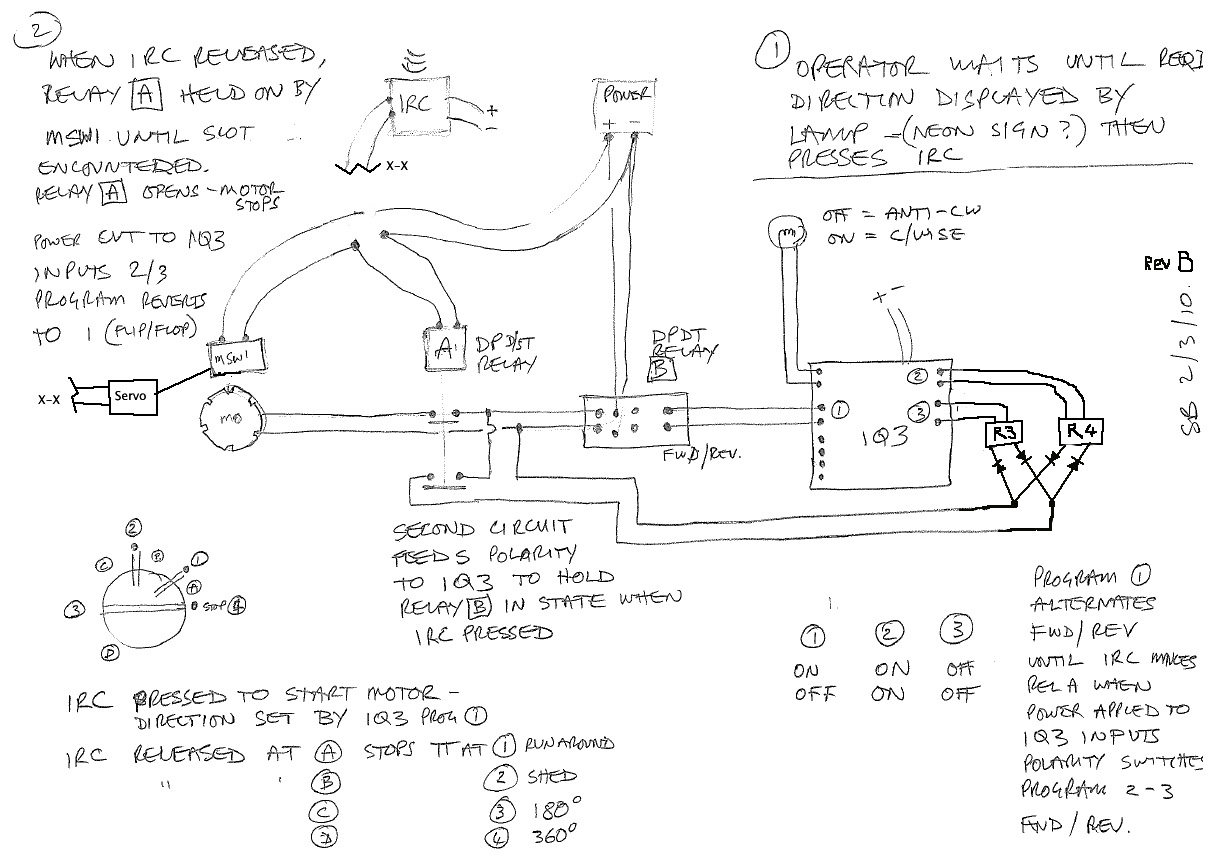 2
WHEN IRC RELEASED,
RELAY A HELD ON BY
MSW1 UNTIL SLOT
ENCOUNTEDED.
RELAY A OPENS - MOTOR
STOPS
POWER CUT TO IQ3
INPUTS 2/3
PROGRAM REVERTS
TO 1 (FLIP/FLOP)
IRC
+
-
X-X
POWER
+ -
1
OPERATOR WAITS UNTIL REQD
DIRECTION DISPLAYED BY
LAMP - (NEON SIGN?) THEN
PRESSES IRC
OFF = ANTI-CW
ON = C/WISE
Rev B
SB 2/3/10.
+ -
MSW1
A
DPD/ST
RELAY
DPDT
RELAY
B
X-X
Servo
MO
FWD/REV.
1
2
3
IQ3
R3
R4
SECOND CIRCUIT
FEEDS POLARITY
TO IQ3 TO HOLD
RELAY B IN STATE WHEN
IRC PRESSED
2
C
B
1
A
3
STOP 4
D
1 2 3
ON ON OFF
OFF ON OFF
PROGRAM 1
ALTERNATES
FWD/REV
UNTIL IRC MAKES
REL A WHEN
POWER APPLED TO
IQ3 INPUTS
POLARITY SWITCHES
PROGRAM 2-3
FWD/REV.
IRC PRESSED TO START MOTOR -
DIRECTION SET BY IQ3 PROG 1
IRC RELEASED AT A STOPS TT AT 1 RUNAROUND
" " B 2 SHED
C 3 180°
D 4 360°